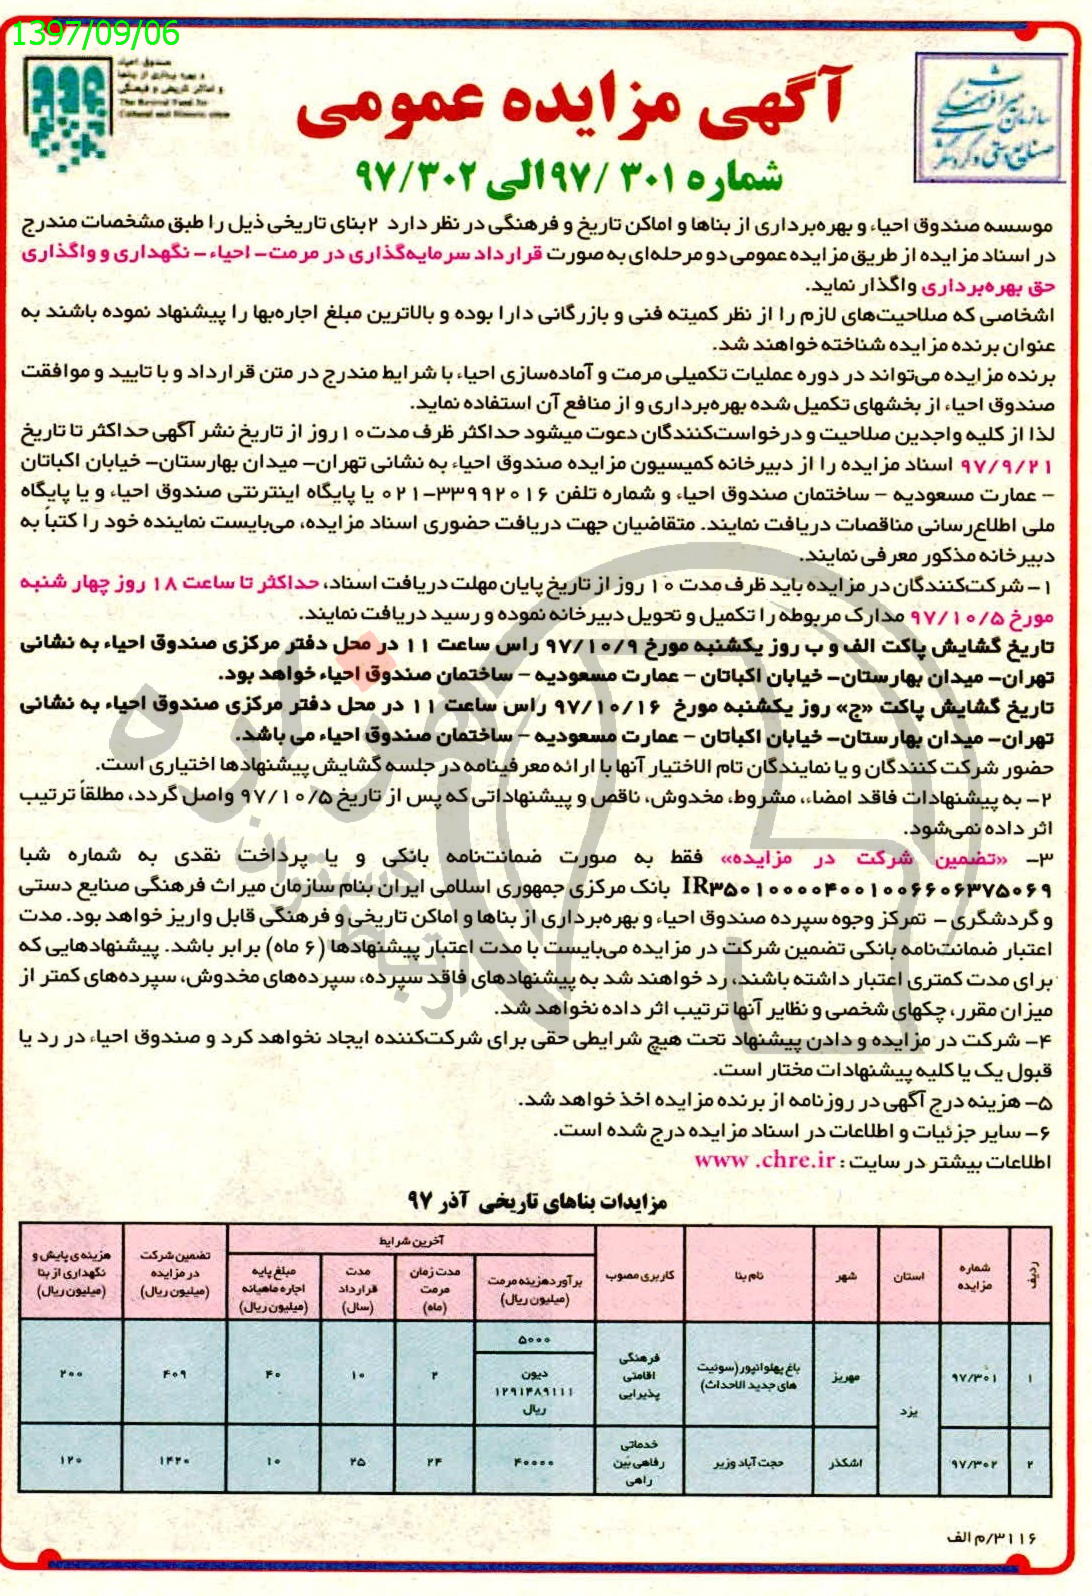 1397/09/06
صندوق احیاء
و بهره برداری از بناها
و اماکن تاریخی و فرهنگی
The Revival Fund for
Cultural and Historic
سازمان میراث فرهنگی
صنایع دستی و گردشگری
آگهی مزایده عمومی
شماره ۹۷/۳۰۱ الی ۹۷/۳۰۲
موسسه صندوق احیاء و بهره‌برداری از بناها و اماکن تاریخ و فرهنگی در نظر دارد ۲بنای تاریخی ذیل را طبق مشخصات مندرج
در اسناد مزایده از طریق مزایده عمومی دو مرحله‌ای به صورت قرارداد سرمایه‌گذاری در مرمت- احیاء- نگهداری و واگذاری
حق بهره‌برداری واگذار نماید.
اشخاصی که صلاحیت‌های لازم را از نظر کمیته فنی و بازرگانی دارا بوده و بالاترین مبلغ اجاره‌بها را پیشنهاد نموده باشند به
عنوان برنده مزایده شناخته خواهند شد.
برنده مزایده می‌تواند در دوره عملیات تکمیلی مرمت و آماده‌سازی احیاء با شرایط مندرج در متن قرارداد و با تایید و موافقت
صندوق احیاء از بخشهای تکمیل شده بهره‌برداری و از منافع آن استفاده نماید.
لذا از کلیه واجدین صلاحیت و درخواست‌کنندگان دعوت میشود حداکثر ظرف مدت۱۰روز از تاریخ نشر آگهی حداکثر تا تاریخ
۹۷/۹/۲۱ اسناد مزایده را از دبیرخانه کمیسیون مزایده صندوق احیاء به نشانی تهران- میدان بهارستان- خیابان اکباتان
- عمارت مسعودیه - ساختمان صندوق احیاء و شماره تلفن ۳۳۹۹۲۰۱۶-۰۲۱ یا پایگاه اینترنتی صندوق احیاء و یا پایگاه
ملی اطلاع‌رسانی مناقصات دریافت نمایند. متقاضیان جهت دریافت حضوری اسناد مزایده، می‌بایست نماینده خود را کتباً به
دبیرخانه مذکور معرفی نمایند.
۱- شرکت‌کنندگان در مزایده باید ظرف مدت ۱۰ روز از تاریخ پایان مهلت دریافت اسناد، حداکثر تا ساعت ۱۸ روز چهار شنبه
مورخ ۹۷/۱۰/۵ مدارک مربوطه را تکمیل و تحویل دبیرخانه نموده و رسید دریافت نمایند.
تاریخ گشایش پاکت الف و ب روز یکشنبه مورخ ۹۷/۱۰/۹ راس ساعت ۱۱ در محل دفتر مرکزی صندوق احیاء به نشانی
تهران- میدان بهارستان- خیابان اکباتان - عمارت مسعودیه - ساختمان صندوق احیاء خواهد بود.
تاریخ گشایش پاکت «ج» روز یکشنبه مورخ ۹۷/۱۰/۱۶ راس ساعت ۱۱ در محل دفتر مرکزی صندوق احیاء به نشانی
تهران- میدان بهارستان- خیابان اکباتان - عمارت مسعودیه - ساختمان صندوق احیاء می باشد.
حضور شرکت کنندگان و یا نمایندگان تام الاختیار آنها با ارائه معرفینامه در جلسه گشایش پیشنهادها اختیاری است.
۲- به پیشنهادات فاقد امضاء، مشروط، مخدوش، ناقص و پیشنهاداتی که پس از تاریخ ۹۷/۱۰/۵ واصل گردد، مطلقاً ترتیب
اثر داده نمی‌شود.
۳- «تضمین شرکت در مزایده» فقط به صورت ضمانت‌نامه بانکی و یا پرداخت نقدی به شماره شبا
IR۳۵۰۱۰۰۰۰۴۰۰۱۰۰۶۶۰۶۳۷۵۰۶۹ بانک مرکزی جمهوری اسلامی ایران بنام سازمان میراث فرهنگی صنایع دستی
و گردشگری - تمرکز وجوه سپرده صندوق احیاء و بهره‌برداری از بناها و اماکن تاریخی و فرهنگی قابل واریز خواهد بود. مدت
اعتبار ضمانت‌نامه بانکی تضمین شرکت در مزایده می‌بایست با مدت اعتبار پیشنهادها (۶ ماه) برابر باشد. پیشنهادهایی که
برای مدت کمتری اعتبار داشته باشند، رد خواهند شد به پیشنهادهای فاقد سپرده، سپرده‌های مخدوش، سپرده‌های کمتر از
میزان مقرر، چکهای شخصی و نظایر آنها ترتیب اثر داده نخواهد شد.
۴- شرکت در مزایده و دادن پیشنهاد تحت هیچ شرایطی حقی برای شرکت‌کننده ایجاد نخواهد کرد و صندوق احیاء در رد یا
قبول یک یا کلیه پیشنهادات مختار است.
۵- هزینه درج آگهی در روزنامه از برنده مزایده اخذ خواهد شد.
۶- سایر جزئیات و اطلاعات در اسناد مزایده درج شده است.
اطلاعات بیشتر در سایت : www .chre.ir
مزایدات بناهای تاریخی آذر ۹۷
ردیف شماره مزایده استان شهر نام بنا کاربری مصوب آخرین شرایط تضمین شرکت در مزایده (میلیون ریال) هزینه‌ی پایش و نگهداری از بنا (میلیون ریال)
برآورد هزینه مرمت (میلیون ریال) مدت زمان مرمت (ماه) مدت قرارداد (سال) مبلغ پایه اجاره ماهیانه (میلیون ریال)
۱ ۹۷/۳۰۱ یزد مهریز باغ پهلوانپور(سوئیت های جدید الاحداث) فرهنگی اقامتی پذیرایی ۵۰۰۰ دیون ۱۲۹۱۴۸۹۱۱۱ ریال ۲ ۱۰ ۴۰ ۴۰۹ ۲۰۰
۲ ۹۷/۳۰۲ اشکذر حجت آباد وزیر خدماتی رفاهی بین راهی ۴۰۰۰۰ ۲۴ ۲۵ ۱۰ ۱۴۲۰ ۱۲۰
۳۱۱۶/م الف